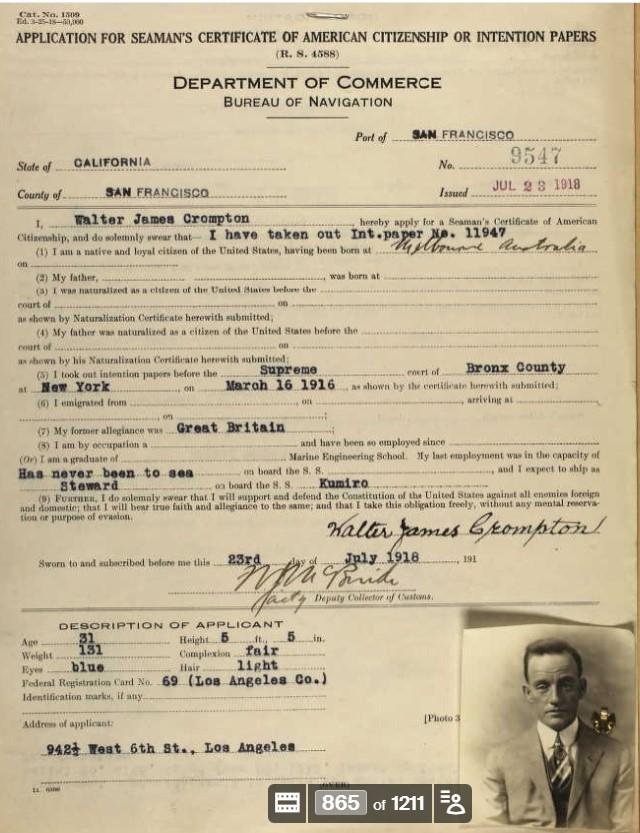 Cat. No. 1509
Ed. 3-25-18—50,000
APPLICATION FOR SEAMAN'S CERTIFICATE OF AMERICAN CITIZENSHIP OR INTENTION PAPERS
(R. S. 4588)
DEPARTMENT OF COMMERCE
BUREAU OF NAVIGATION
Port of SAN FRANCISCO
State of CALIFORNIA No. 9547
County of SAN FRANCISCO Issued JUL 23 1918
I, Walter James Crompton hereby apply for a Seaman's Certificate of American
Citizenship, and do solemnly swear that— I have taken out Int.paper No. 11947
(1) I am a native and loyal citizen of the United States, having been born at Melbourne Australia
on
(2) My father, , was born at
(3) I was naturalized as a citizen of the United States before the
court of on
as shown by Naturalization Certificate herewith submitted;
(4) My father was naturalized as a citizen of the United States before the
court of on
as shown by his Naturalization Certificate herewith submitted;
(5) I took out intention papers before the Supreme court of Bronx County
at New York , on March 16 1916 , as shown by the certificate herewith submitted;
(6) I emigrated from , on , arriving at
, on ;
(7) My former allegiance was Great Britain ;
(8) I am by occupation a and have been so employed since
(Or) I am a graduate of Marine Engineering School. My last employment was in the capacity of
Has never been to sea on board the S. S. , and I expect to ship as
Steward on board the S. S. Kumiro
(9) FURTHER, I do solemnly swear that I will support and defend the Constitution of the United States against all enemies foreign
and domestic; that I will bear true faith and allegiance to the same; and that I take this obligation freely, without any mental reserva-
tion or purpose of evasion.
Walter James Crompton
Sworn to and subscribed before me this 23rd day of July 1918 , 191
McBride
Deputy Collector of Customs.
DESCRIPTION OF APPLICANT
Age 31 Height 5 ft., 5 in.
Weight 131 Complexion fair
Eyes blue Hair light
Federal Registration Card No. 69 (Los Angeles Co.)
Identification marks, if any
Address of applicant: [Photo 3
942½ West 6th St., Los Angeles
(OVER)
865 of 1211